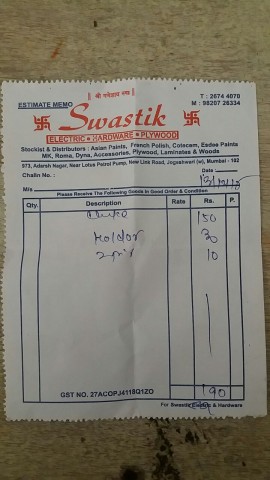 || श्री गणेशाय नमः ||
T : 2674 4070
M : 98207 26334
ESTIMATE MEMO
Swastik
ELECTRIC • HARDWARE • PLYWOOD
Stockist & Distributors : Asian Paints, French Polish, Cotecam, Esdee Paints
MK, Roma, Dyna, Accessories, Plywood, Laminates & Woods
973, Adarsh Nagar, Near Lotus Petrol Pump, New Link Road, Jogeshwari (w), Mumbai - 102
Challn No. :
Date
M/s
Please Receive The Following Goods In Good Order & Condition
Qty. Description Rate Rs. P.
150
Holdor 30
10
GST NO. 27ACOPJ4118Q1ZO 190
For Swastik Electric & Hardware